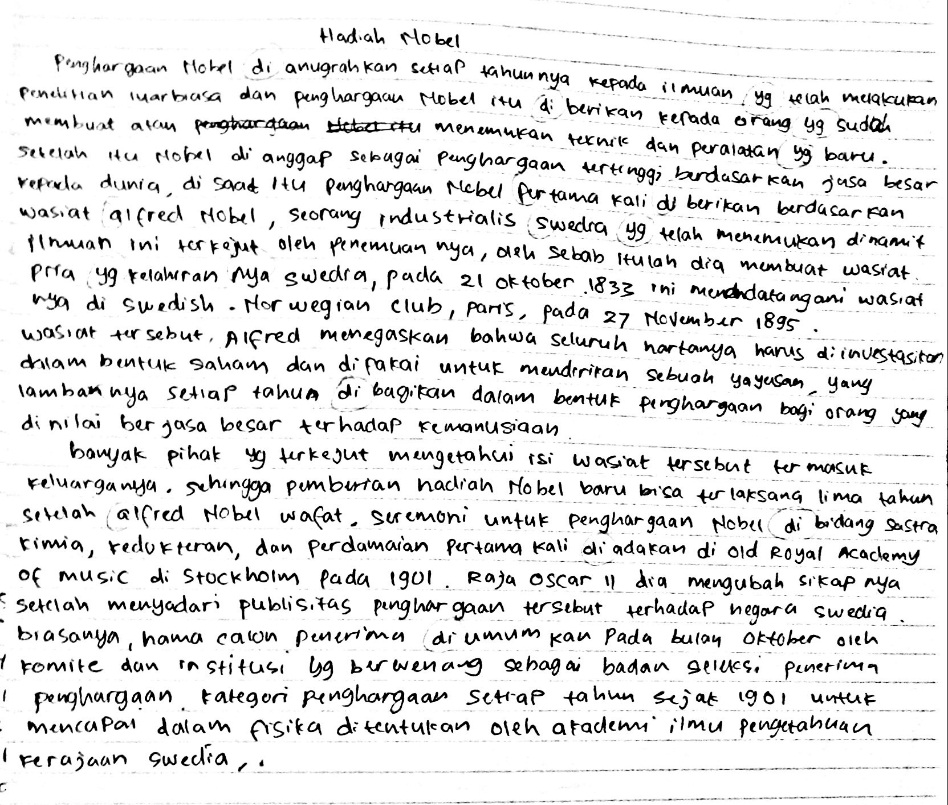 Hadiah Nobel
Penghargaan Nobel di anugrahkan setiap tahunnya kepada ilmuan yg telah melakukan
penelitian luarbiasa dan penghargaan Nobel itu di berikan kepada orang yg sudah
membuat atau penghargaan Nobel itu menemukan teknik dan peralatan yg baru.
Setelah itu Nobel di anggap sebagai penghargaan tertinggi berdasarkan jasa besar
kepada dunia, di saat itu penghargaan Nobel pertama kali di berikan berdasarkan
wasiat alfred Nobel, seorang industrialis swedia yg telah menemukan dinamit
ilmuan ini terkejut oleh penemuan nya, oleh sebab itulah dia membuat wasiat.
pria yg kelahiran nya swedia, pada 21 oktober 1833 ini menandatangani wasiat
nya di swedish. Nor wegian club, paris, pada 27 November 1895.
wasiat tersebut, Alfred menegaskan bahwa seluruh hartanya harus diinvestasikan
dalam bentuk saham dan dipakai untuk mendirikan sebuah yayasan yang
lamban nya setiap tahun di bagikan dalam bentuk penghargaan bagi orang yang
di nilai ber jasa besar terhadap kemanusiaan.
banyak pihak yg terkejut mengetahui isi wasiat tersebut ter masuk
keluarganya. sehingga pemberian hadiah Nobel baru bisa ter laksana lima tahun
setelah alfred Nobel wafat. seremoni untuk penghargaan Nobel di bidang sastra
kimia, kedokteran, dan perdamaian pertama kali di adakan di old Royal Academy
OF music di Stockholm pada 1901. Raja Oscar II dia mengubah sikap nya
setelah menyadari publisitas penghargaan tersebut terhadap negara swedia.
biasanya, nama calon penerima di umum kan pada bulan oktober oleh
komite dan institusi yg berwenang sebagai badan seleksi penerima
penghargaan. kategori penghargaan setiap tahun sejak 1901 untuk
mencapai dalam fisika ditentukan oleh akademi ilmu pengetahuan
kerajaan swedia,.